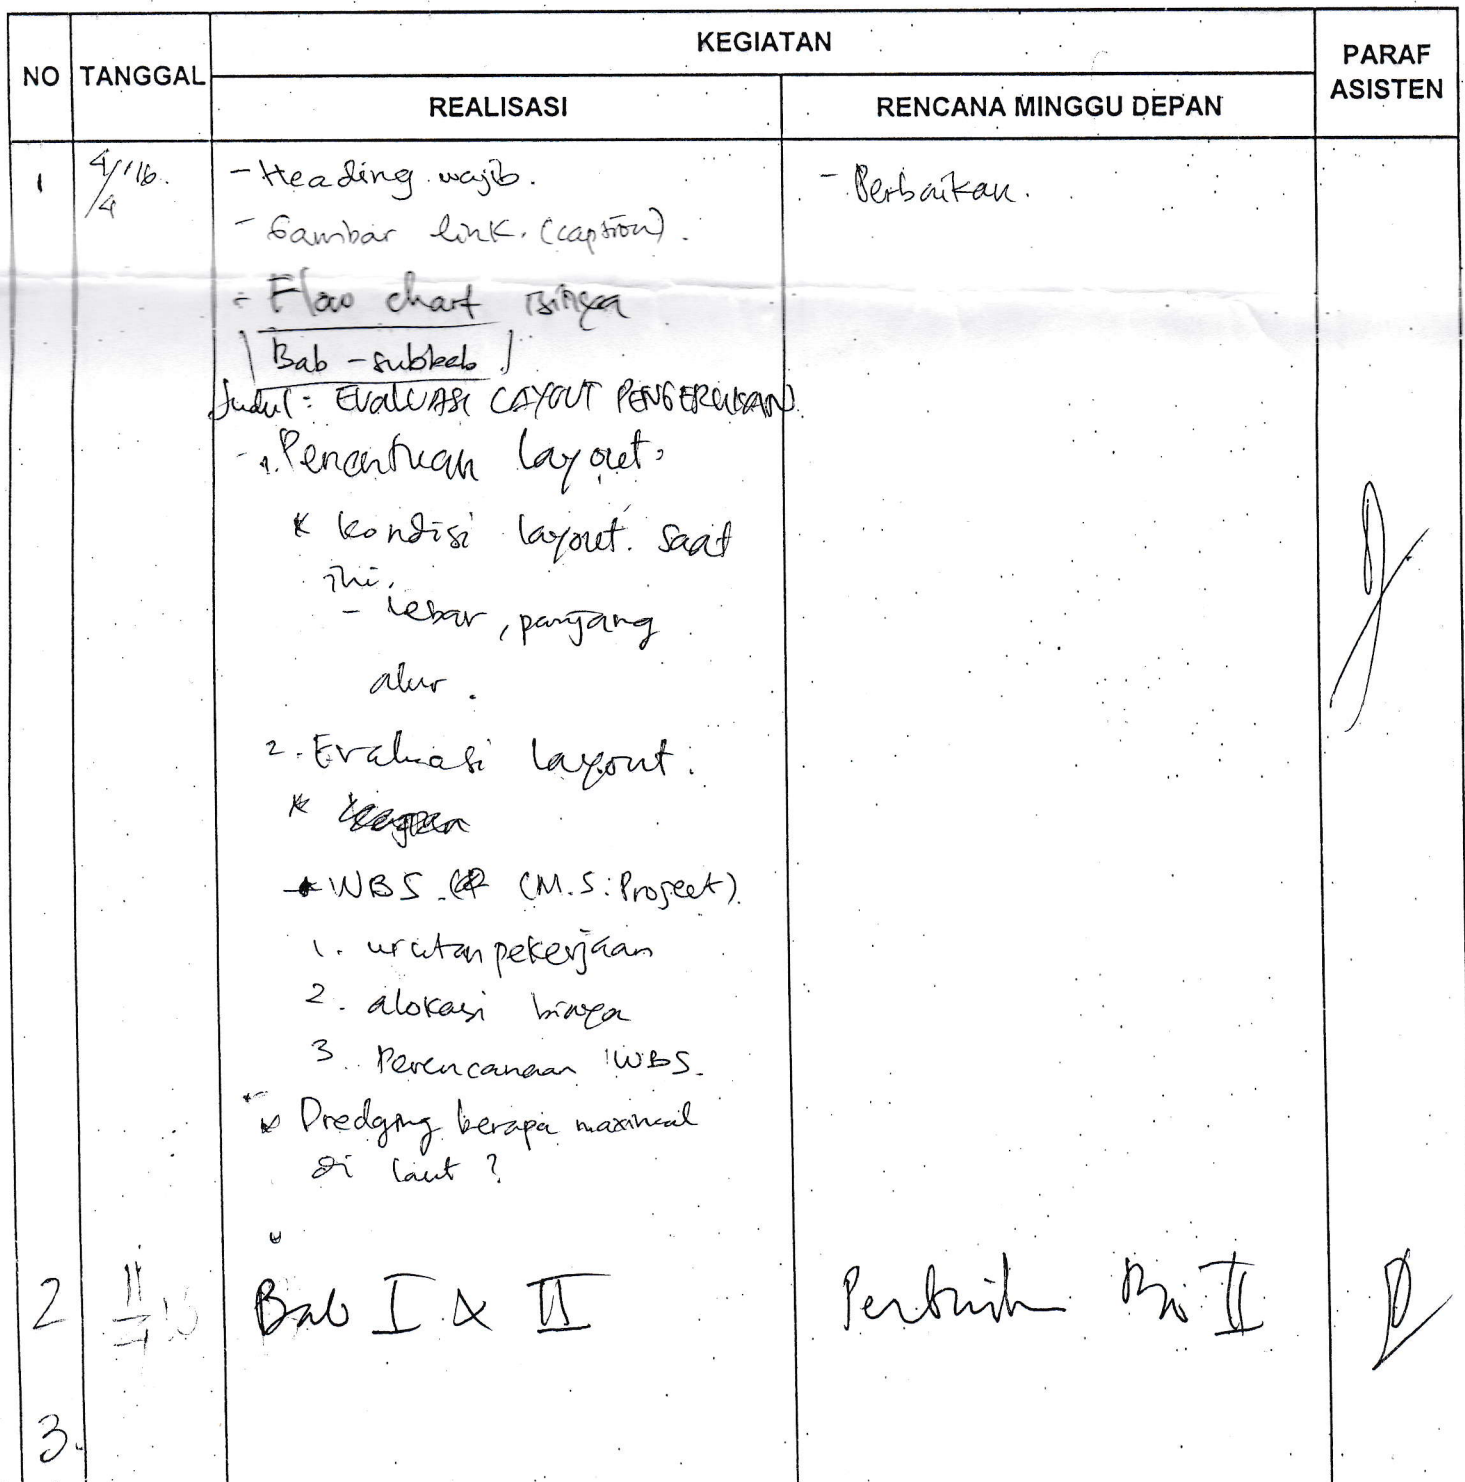 KEGIATAN
NO TANGGAL PARAF ASISTEN
REALISASI RENCANA MINGGU DEPAN
1 4/4 '16. - Heading wajib. - Perbaikan.
- Gambar link. (caption).
- Flow chart
Bab - subbab
Judul: EVALUASI LAYOUT PENGERUKAN
- 1. Penentuan layout:
* kondisi layout. saat
ini.
- lebar, panjang
alur.
2. Evaluasi layout:
*
* WBS. (M.S: Project).
1. urutan pekerjaan
2. alokasi biaya
3. Perencanaan WBS.
* Dredging berapa maximal
di laut?
2 Bab I & II Perbaikan Bab II
3.